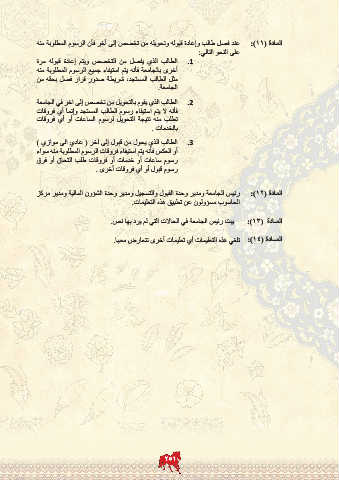 المادة (١١): عند فصل طالب وإعادة قبوله وتحويله من تخصص إلى آخر فأن الرسوم المطلوبة منه
على النحو التالي:
1. الطالب الذي يفصل من التخصص ويتم إعادة قبوله مرة
أخرى بالجامعة فأنه يتم استيفاء جميع الرسوم المطلوبة منه
مثل الطالب المستجد، شريطة صدور قرار فصل بحقه من
الجامعة.
2. الطالب الذي يقوم بالتحويل من تخصص إلى آخر في الجامعة
فأنه لا يتم استيفاء رسوم الطالب المستجد وإنما أي فروقات
تطلب منه نتيجة التحويل لرسوم الساعات أو أي فروقات
بالخدمات .
3. الطالب الذي يحول من قبول إلى آخر ( عادي الى موازي )
أو العكس فأنه يتم استيفاء فروقات الرسوم المطلوبة منه سواء
رسوم ساعات أو خدمات أو فروقات طلب التحاق أو فرق
رسوم قبول أو أي فروقات أخرى .
المادة (١٢): رئيس الجامعة ومدير وحدة القبول والتسجيل ومدير وحدة الشؤون المالية ومدير مركز
الحاسوب مسؤولون عن تطبيق هذه التعليمات.
المادة (١٣): يبت رئيس الجامعة في الحالات التي لم يرد بها نص.
المادة (١٤): تلغي هذه التعليمات أي تعليمات أخرى تتعارض معها.
٢٥١